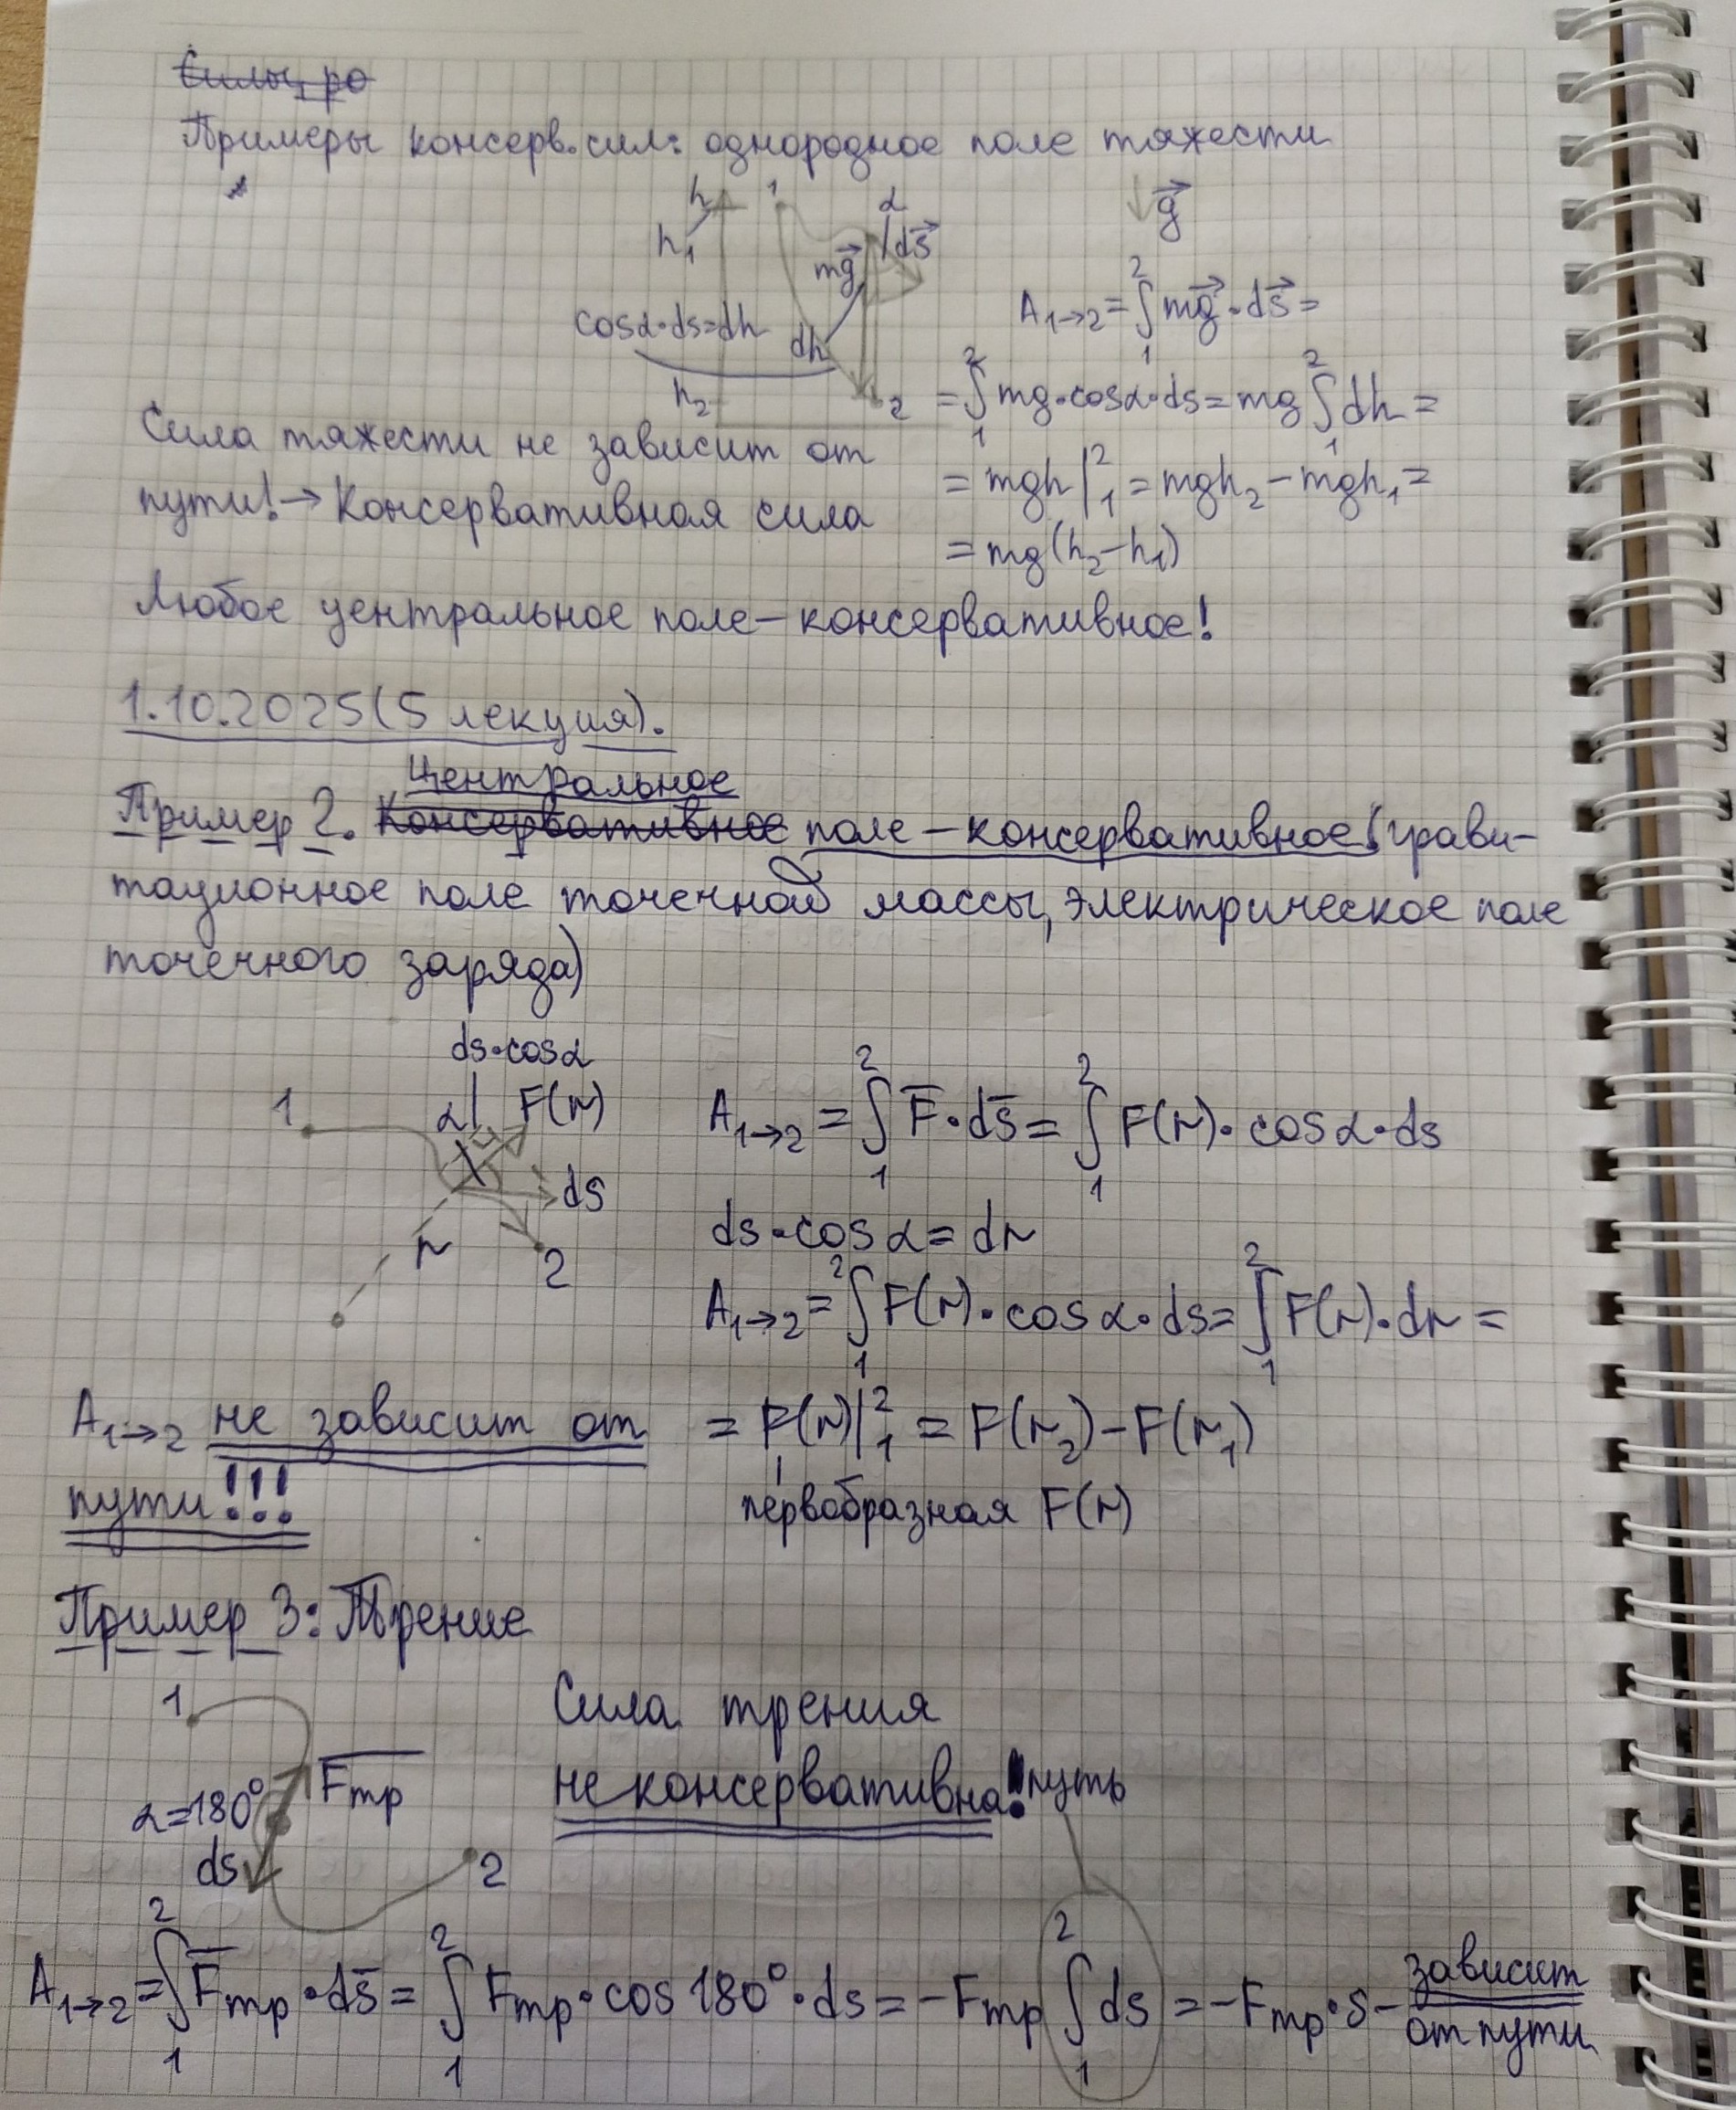 Силы, ро
Примеры консерв. сил: однородное поле тяжести
h 1 α g⃗
h₁ mg⃗ ds⃗
A₁→₂ = ∫₁² mg⃗·ds⃗ =
cosα·ds=dh dh
h₂ 2
= ∫₁² mg·cosα·ds = mg ∫₁² dh =
Сила тяжести не зависит от
= mgh|₁² = mgh₂ − mgh₁ =
пути! → Консервативная сила
= mg(h₂−h₁)
Любое центральное поле – консервативное!
1.10.2025 (5 лекция).
Центральное
Пример 2. Консервативное поле – консервативное (грави-
тационное поле точечной массы, электрическое поле
точечного заряда)
ds·cosα
1 α F(r)
ds
r 2
A₁→₂ = ∫₁² F̅·ds̅ = ∫₁² F(r)·cosα·ds
ds·cosα = dr
A₁→₂ = ∫₁² F(r)·cosα·ds = ∫₁² F(r)·dr =
A₁→₂ не зависит от
пути!!!
= F(r)|₁² = F(r₂) − F(r₁)
первобразная F(r)
Пример 3: Трение
1
F̅тр
α=180°
ds
2
Сила трения
не консервативна!
путь
A₁→₂ = ∫₁² F̅тр·ds̅ = ∫₁² Fтр·cos180°·ds = −Fтр ∫₁² ds = −Fтр·s – зависит
от пути